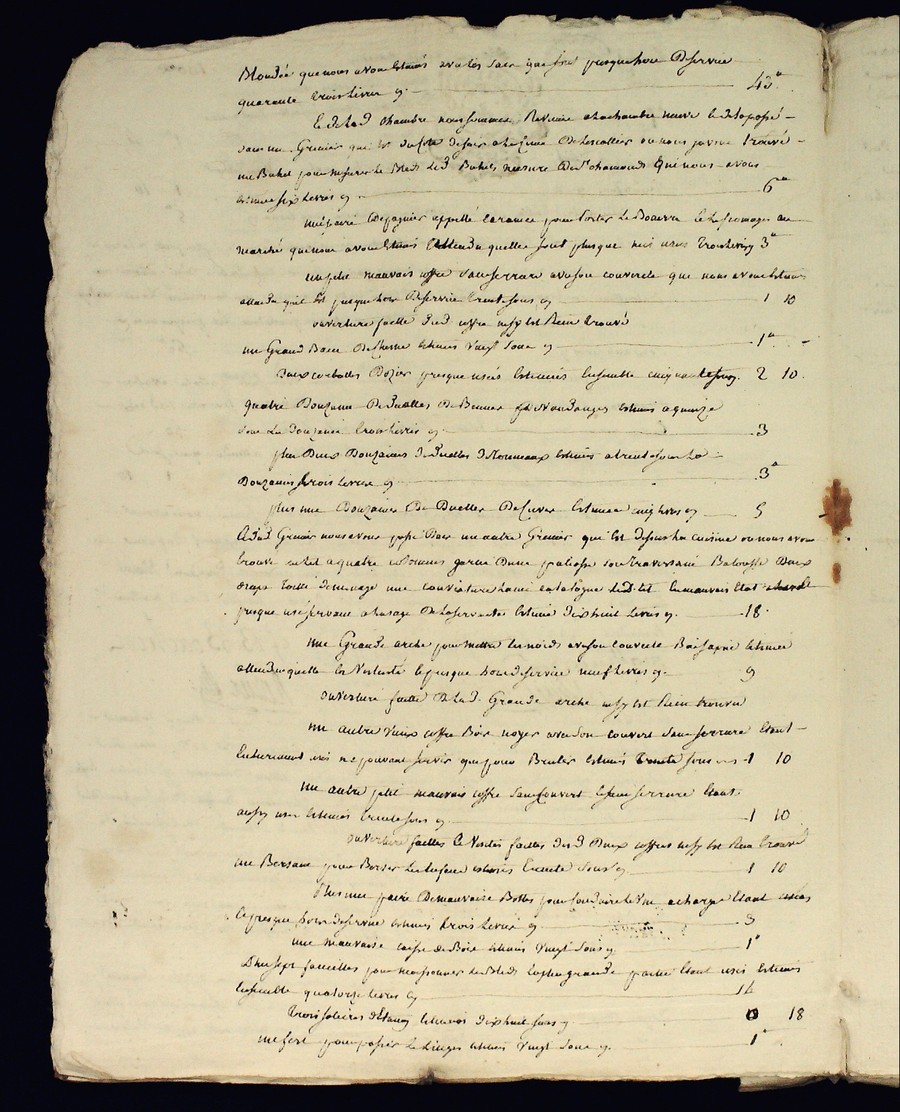 Blondée que nous avons Estimés avec les sacs que sont presque hors De service
quarante trois Livres cy 43
De Lad chambre nous sommes Revenus a la chambre neuve
dans un Grenier qui Est ou nous avons trouvé
un Bichet pour mesurer le Bleds Led Bichet mesure De St chamond Que nous avons
Estimée six Livres cy 6
une paire De pagnier appellé pour Porter Le Beurre Et Les fromages au
marché que nous avons Estimés attendu quelle sont presque usés trois Livres cy 3
un petit mauvais coffre sans serrure avec son couvercle que nous avons Estimés
attendu quil Est presque hors De service trente sous cy 1 10
ouverture faitte Dud coffre ny Est Rien trouvé
une Grand Banc De Chesne Estimés Vingt Sous cy 1
Deux corbeilles Dozier presque usés Estimés Ensemble cinquante sous cy 2 10
quatre Douzaine De Douelles De Bennes De Vendanges Estimés a quinze
sous La Douzaine trois Livres cy 3
plus Deux Douzaines de Douelles de Tonneaux Estimés a trente sous La
Douzaines trois Livres cy 3
plus une Douzaines De Douelles De Cuves Estimée cinq Livres cy 5
Dud Grenier nous avons passé Dans un autre Grenier qui Est Dessus La cuisine ou nous avons
trouvé un Lit a quatre colonnes garni Dune paliasse son Traversain Balouffe Deux
draps toille de menage une couverture Laine catalogne Led Lit En mauvais Etat
presque usé servant a Lusage De La servante Estimé Dixhuit Livres cy 18
une Grande arche pour mettre avec son couvercle Bois sapin Estimée
attendu quelle Est Vetuste Et presque hors de service neuf Livres cy 9
ouverture faitte De Lad Grande arche ny Est Rien trouvé
un autre Vieux coffre Bois noyer avec son couvert sans serrure Etant
Entierement usé ne pouvant servir que pour Bruler Estimés trente sous cy 1 10
un autre petit mauvais coffre sans couvert Et sans serrure Etant
aussy usé Estimés trente sous cy 1 10
ouverture faittes Et Visites faittes Desd Deux coffres ny Est Rien trouvé
un Berseau pour Berser Les Enfans Estimés trente Sous cy 1 10
Plus une paire De mauvaise Bottes pour conduire Le Vin a charge Etant usées
Et presque hors de service Estimés trois Livres cy 3
une mauvaise caisse de Bois Estimés Vingt Sous cy 1
Dix sept faucilles pour moissonner Les Bleds La plus grande partie Etant usés Estimés
Ensemble quatorze Livres cy 14
trois Estimés Dixhuit sous cy 0 18
un fert pour passer Le Linges Estimés Vingt Sous cy 1